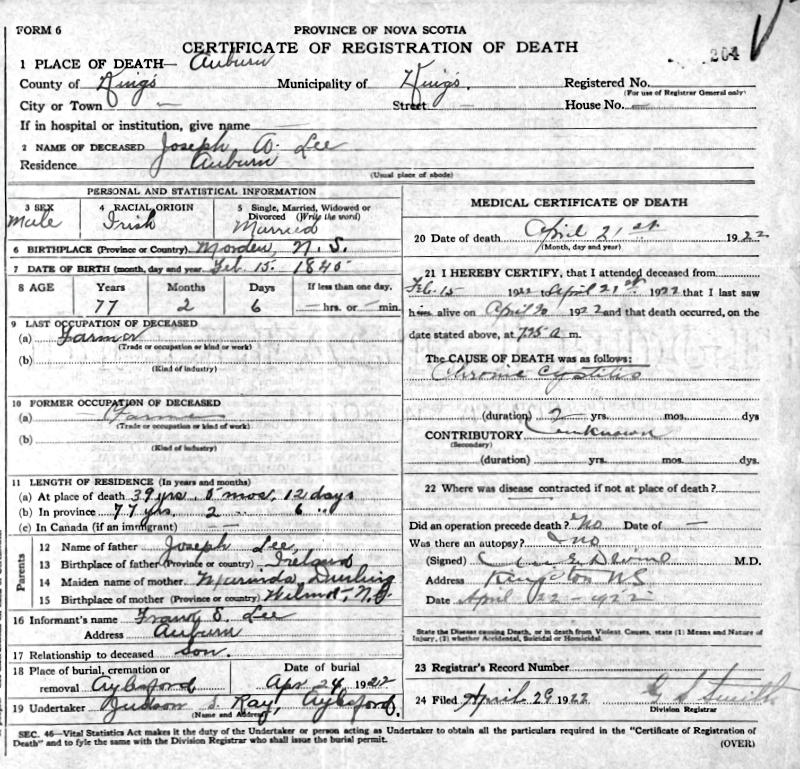 FORM 6
PROVINCE OF NOVA SCOTIA
CERTIFICATE OF REGISTRATION OF DEATH
204
1 PLACE OF DEATH— Auburn
County of Kings Municipality of Kings. Registered No.
(For use of Registrar General only)
City or Town — Street — House No. —
If in hospital or institution, give name —
2 NAME OF DECEASED Joseph A. Lee
Residence Auburn
(Usual place of abode)
PERSONAL AND STATISTICAL INFORMATION
3 SEX Male
4 RACIAL ORIGIN Irish
5 Single, Married, Widowed or Divorced (Write the word) Married
6 BIRTHPLACE (Province or Country) Morden, N. S.
7 DATE OF BIRTH (month, day and year Feb. 15. 1845
8 AGE Years Months Days If less than one day.
77 2 6 — hrs. or — min.
9 LAST OCCUPATION OF DECEASED
(a) Farmer
(Trade or occupation or kind of work)
(b)
(Kind of industry)
10 FORMER OCCUPATION OF DECEASED
(a) Farmer
(Trade or occupation or kind of work)
(b)
(Kind of industry)
11 LENGTH OF RESIDENCE (In years and months)
(a) At place of death 39 yrs. 5 mos. 12 days
(b) In province 77 yrs. 2 " 6 "
(c) In Canada (if an immigrant) —
Parents
12 Name of father Joseph Lee,
13 Birthplace of father (Province or country) Ireland
14 Maiden name of mother Durling
15 Birthplace of mother (Province or country) Wilmot, N.S.
16 Informant's name Frank E. Lee
Address Auburn
17 Relationship to deceased Son.
18 Place of burial, cremation or removal Aylesford Date of burial Apr 24 1922
19 Undertaker Judson S. Ray, Aylesford
(Name and Address)
MEDICAL CERTIFICATE OF DEATH
20 Date of death April 21st 1922
(Month, day and year)
21 I HEREBY CERTIFY, that I attended deceased from
Feb. 15 1922 to April 21st 1922 that I last saw
him alive on April 20 1922 and that death occurred, on the
date stated above, at 7.15 a m.
The CAUSE OF DEATH was as follows:
Chronic Cystitis
(duration) 2 yrs. mos. dys
CONTRIBUTORY unknown
(Secondary)
(duration) yrs. mos. dys.
22 Where was disease contracted if not at place of death?
Did an operation precede death? No Date of —
Was there an autopsy? no
(Signed) M.D.
Address Kingston NS
Date April 22 - 1922
State the Disease causing Death, or in death from Violent Causes, state (1) Means and Nature of
Injury, (2) whether Accidental, Suicidal or Homicidal.
23 Registrar's Record Number
24 Filed April 29 1922 G S Smith
Division Registrar
SEC. 46—Vital Statistics Act makes it the duty of the Undertaker or person acting as Undertaker to obtain all the particulars required in the "Certificate of Registration of
Death" and to fyle the same with the Division Registrar who shall issue the burial permit.
(OVER)